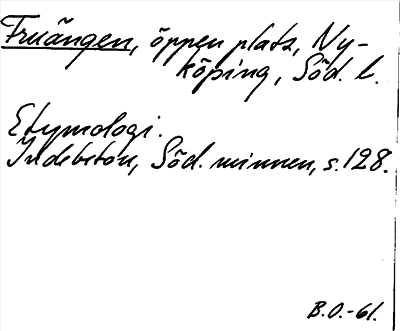 Fruängen, öppen plats, Ny-
köping, Söd. l.
Etymologi.
Indebetou, Söd. minnen, s. 128.
B.O.-61.